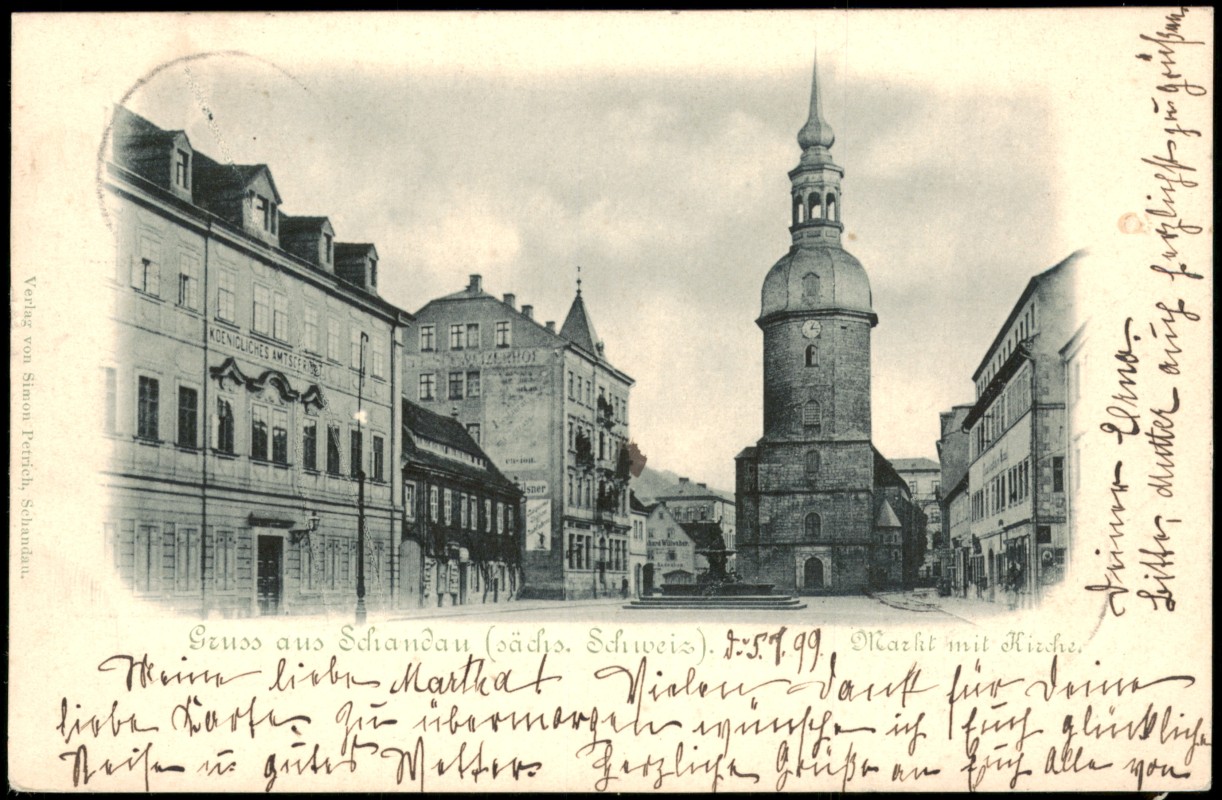 KOENIGLICHES AMTSGERICHT
Verlag von Simon Petrich, Schandau.
Gruss aus Schandau (sächs. Schweiz).
d. 5.7.99.
Markt mit Kirche.
Meine liebe Martha! Vielen Dank für Deine
liebe Karte. Zu übermorgen wünsche ich Euch glückliche
Reise u. gutes Wetter. Herzliche Grüße an Euch Alle von
Deiner Erna.
Bitte, Mutter auch herzlichst zu grüßen.